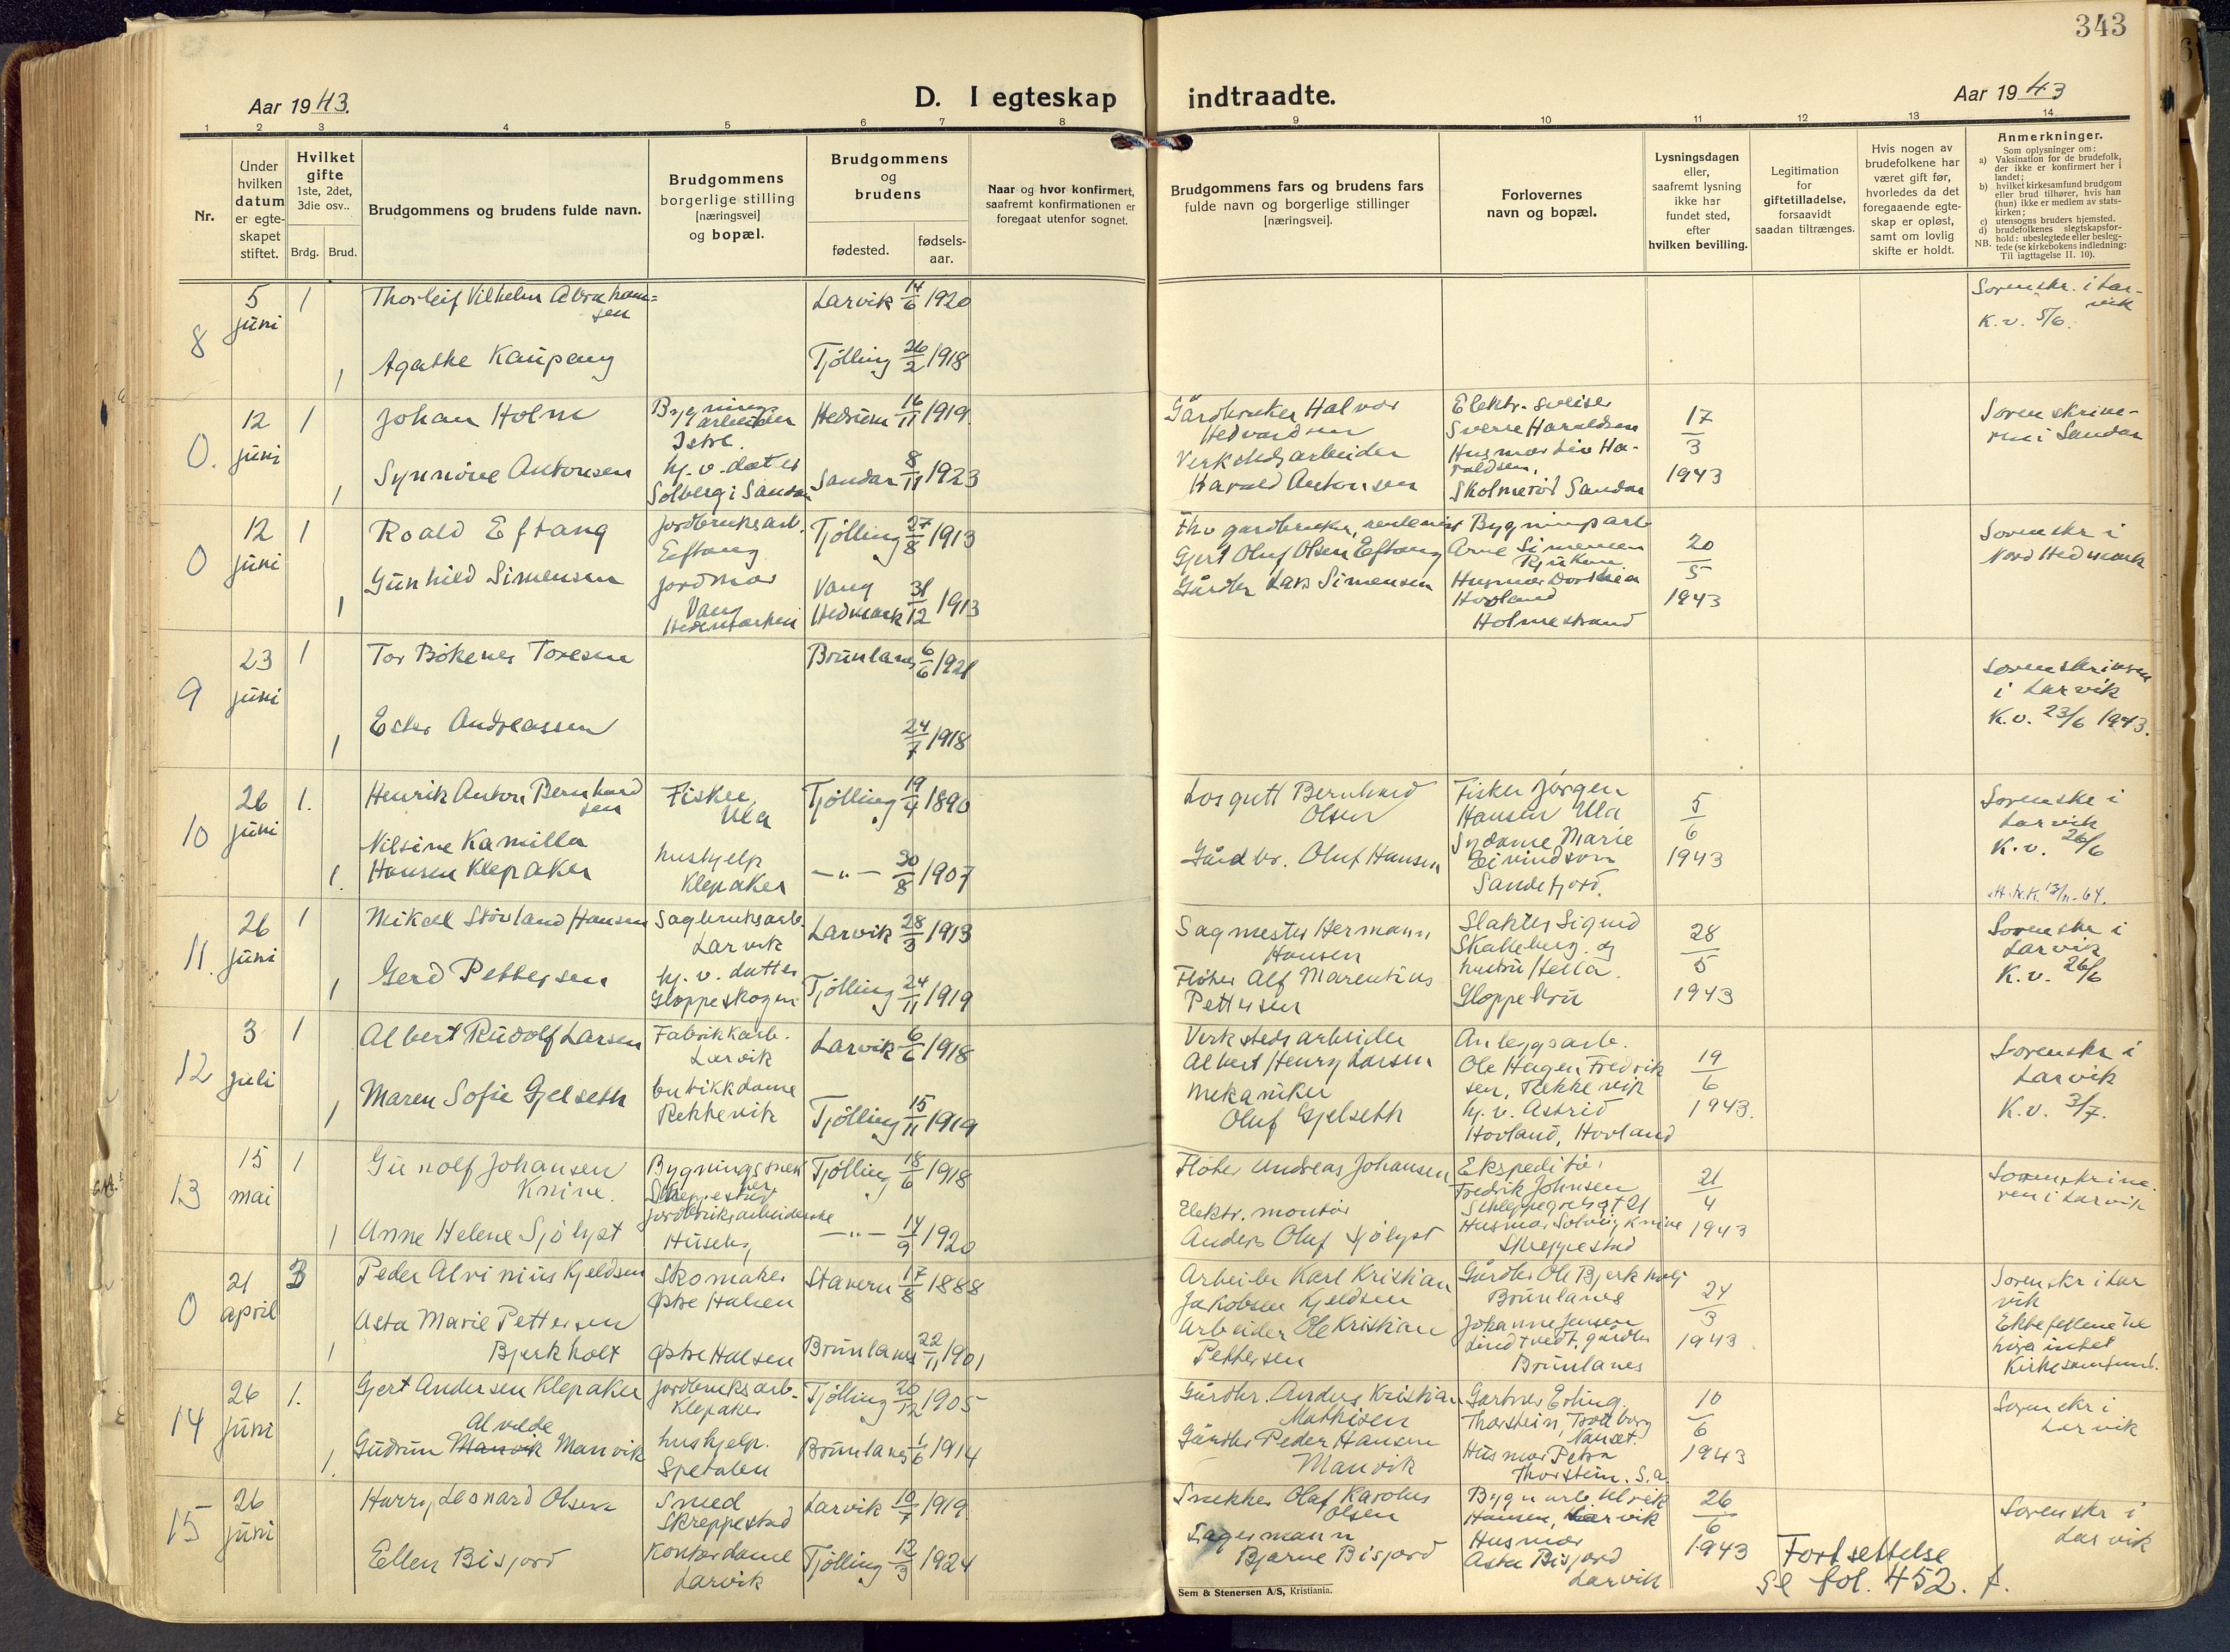 343
Aar 1943.
D. I egteskap indtraadte.
Aar 1943
1 2 3 4 5 6 7 8 9 10 11 12 13 14
Nr.
Under
hvilken
datum
er egte-
skapet
stiftet.
Hvilket
gifte
1ste, 2det,
3die osv..
Brdg. Brud.
Brudgommens og brudens fulde navn.
Brudgommens
borgerlige stilling
[næringsvei]
og bopæl.
Brudgommens
og
brudens
fødested.
fødsels-
aar.
Naar og hvor konfirmert,
saafremt konfirmationen er
foregaat utenfor sognet.
Brudgommens fars og brudens fars
fulde navn og borgerlige stillinger
[næringsvei].
Forlovernes
navn og bopæl.
Lysningsdagen
eller,
saafremt lysning
ikke har
fundet sted,
efter
hvilken bevilling.
Legitimation
for
giftetilladelse,
forsaavidt
saadan tiltrænges.
Hvis nogen av
brudefolkene har
været gift før,
hvorledes da det
foregaaende egte-
skap er opløst,
samt om lovlig
skifte er holdt.
Anmerkninger.
Som oplysninger om:
a) Vaksination for de brudefolk,
der ikke er konfirmert her i
landet;
b) hvilket kirkesamfund brudgom
eller brud tilhører, hvis han
(hun) ikke er medlem av stats-
kirken;
c) utensogns bruders hjemsted.
d) brudefolkenes slegtskapsfor-
hold: ubeslegtede eller besleg-
NB. tede (se kirkebokens indledning:
Til iagttagelse II. 10).
8
5
juni
1
Thorleif Vilhelm Abraham=
sen
Larvik 14/6 1920
Sorenskr. i Lar-
vik
K.v. 5/6.
1
Agathe Kaupang
Tjølling 26/2 1918
0.
12
juni
1
Johan Holm
Bygnings
arbeider
Istre.
Hedrum 16/11 1919.
Gårdbruker Halvor
Hedvardsen
Elektr. sveiser
Sverre Haraldsen
17/3
1943
Sorenskrive-
ren i Sandar
1
Synnøve Antonsen
hj.v. datter
Solberg i Sandar
Sandar 8/11 1923
Verkstedsarbeider
Harald Antonsen
Husmor Liv Ha-
raldsen,
Skolmerød Sandar
0
12
juni
1
Roald Eftang
jordbruksarb.
Eftang
Tjølling 27/8 1913
Fhv gardbruker, rentenist
Gjert Oluf Olsen Eftang
Bygningsarb
Arne Simensen
Rjukan
20/5
1943
Sorenskr i
Nord Hedmark
1
Gunhild Simensen
jordmor
Vang
Hedemarken
Vang
Hedmark 31/12 1913
Gårdbr Lars Simensen
Husmor Dorthea
Hovland
Holmestrand
9
23
juni
1
Tor Bøkenes Toresen
Brunlanes 6/6 1921
Sorenskriveren
i Larvik
K.v. 23/6 1943.
1
Ester Andreassen
24/7 1918
10
26
juni
1.
Henrik Anton Bernhard
sen
Fisker,
Ula
Tjølling 19/4 1890
Losgutt Bernhard
Olsen
Fisker Jørgen
Hansen Ula
5/6
1943
Sorenskr i
Larvik
K.v. 26/6
1.
Nilsine Kamilla
Hansen Klepaker
hushjelp
Klepaker
— " — 30/8 1907
Gårdbr. Oluf Hansen
Sydame Marie
Eivindson
Sandefjord.
11.
26
juni
1
Mikael Støvland Hansen
Sagbruksarb.
Larvik
Larvik 28/3 1913
Sagmester Hermann
Hansen
Slakter Sigurd
Skalleberg og
hustru Hella.
28/5
1943
Sorenskr i
Larvik
K.v. 26/6
1
Gerd Pettersen
hj.v. datter
Gloppeskogen
Tjølling 24/11 1919
Fløter Alf Marentius
Pettersen
12
3
juli
1
Albert Rudolf Larsen
Fabrikkarb.
Larvik
Larvik 6/6 1918
Verkstedsarbeider
Albert Henry Larsen
Anleggsarb.
Ole Hagen Fredrik
sen, Rekkevik
19/6
1943.
Sorenskr i
Larvik
K.v. 3/7.
1
Maren Sofie Gjelseth
butikkdame
Rekkevik
Tjølling 15/11 1919
Mekaniker
Oluf Gjelseth
hj.v. Astrid
Hovland, Hovland
13
15
mai
1
Gunolf Johansen
Knive.
Bygningssnek
ker
Skreppestad
Tjølling 18/6 1918
Fløter Andreas Johansen
Ekspeditør
Fredrik Johnsen
21/4
1943
Sorenskrive-
ren i Larvik
1
Anne Helene Sjølyst
jordbruksarbeiderske
Huseby
— " — 14/9 1920
Elektr. montør
Anders Oluf Sjølyst
Husmor Solveig Knive
Skreppestad
0
21
april
3
Peder Alvinius Kjeldsen
Skomaker
Østre Halsen
Stavern 17/8 1888
Arbeider Karl Kristian
Jakobsen Kjeldsen
Gårdbr Ole Bjerkholt
Brunlanes
24/3
1943
Sorenskr i Lar
vik
Ektefellene til
hører intet
Kirkesamfund.
1
Asta Marie Pettersen
Bjerkholt
Østre Halsen
Brunlanes 22/11 1901
Arbeider Ole Kristian
Pettersen
Johanne Jensen
Lindtvedt, gårdbr
Brunlanes
14
26
juni
1.
Gjert Andersen Klepaker
jordbruksarb.
Klepaker
Tjølling 20/12 1905
Gårdbr. Anders Kristian
Mathisen
Gartner Erling
Thorstein,
Nanset.
10/6
1943
Sorenskr i
Larvik
1.
Alvilde
Gudrun Manvik Manvik
hushjelp.
Spetalen
Brunlanes 1/6 1914
Gårdbr Peder Hansen
Manvik
Husmor Petra
Thorstein. S.a.
15
26
juni
Harry Leonard Olsen
Smed
Skreppestad
Larvik 10/7 1919.
Snekker Olaf Karolius
Olsen
Bygn arb. Ulrik
Hansen, Larvik
26/6
1943
Sorenskr i
Larvik
Ellen Bisjord
Kontordame
Larvik
Tjølling 12/3 1924
Lagermann
Bjarne Bisjord
Husmor
Asta Bisjord
Larvik
Fortsettelse
se fol. 452. f.
Sem & Stenersen A/S, Kristiania.